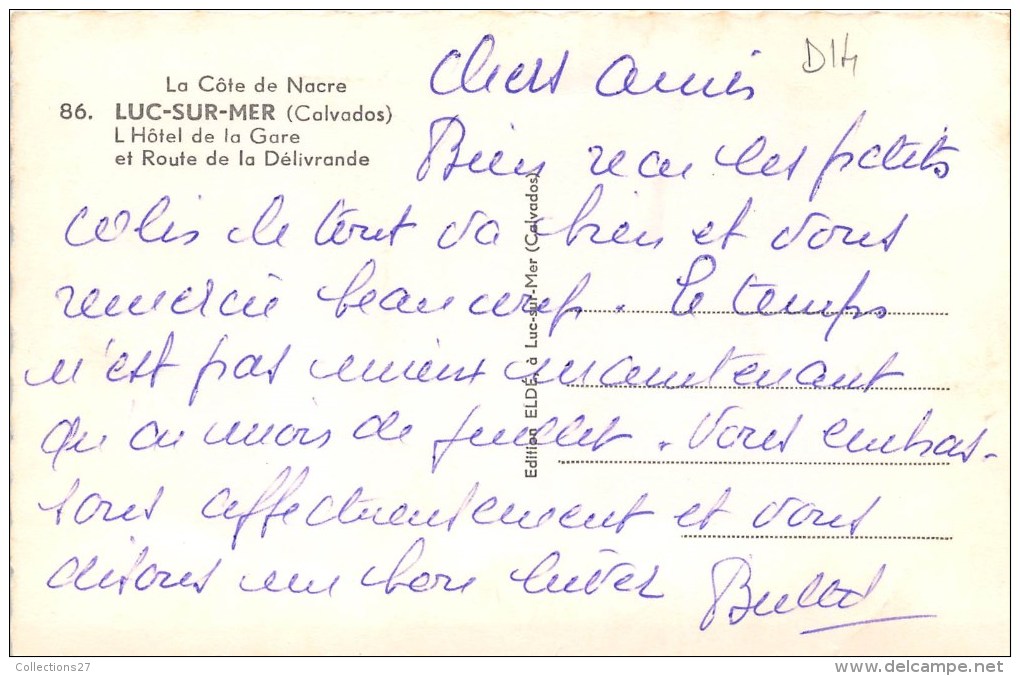 La Côte de Nacre
86. LUC-SUR-MER (Calvados)
L'Hôtel de la Gare
et Route de la Délivrande
D14
Chers amis
Bien reçu les petits
colis le tout va bien et vous
remercie beaucoup. Le temps
n'est pas mieux maintenant
qu'au mois de juillet. Vous embras-
sons affectueusement et vous
disons un bon hiver
Edition ELDÉ, à Luc-sur-Mer (Calvados)
Collections27
delcampe.net